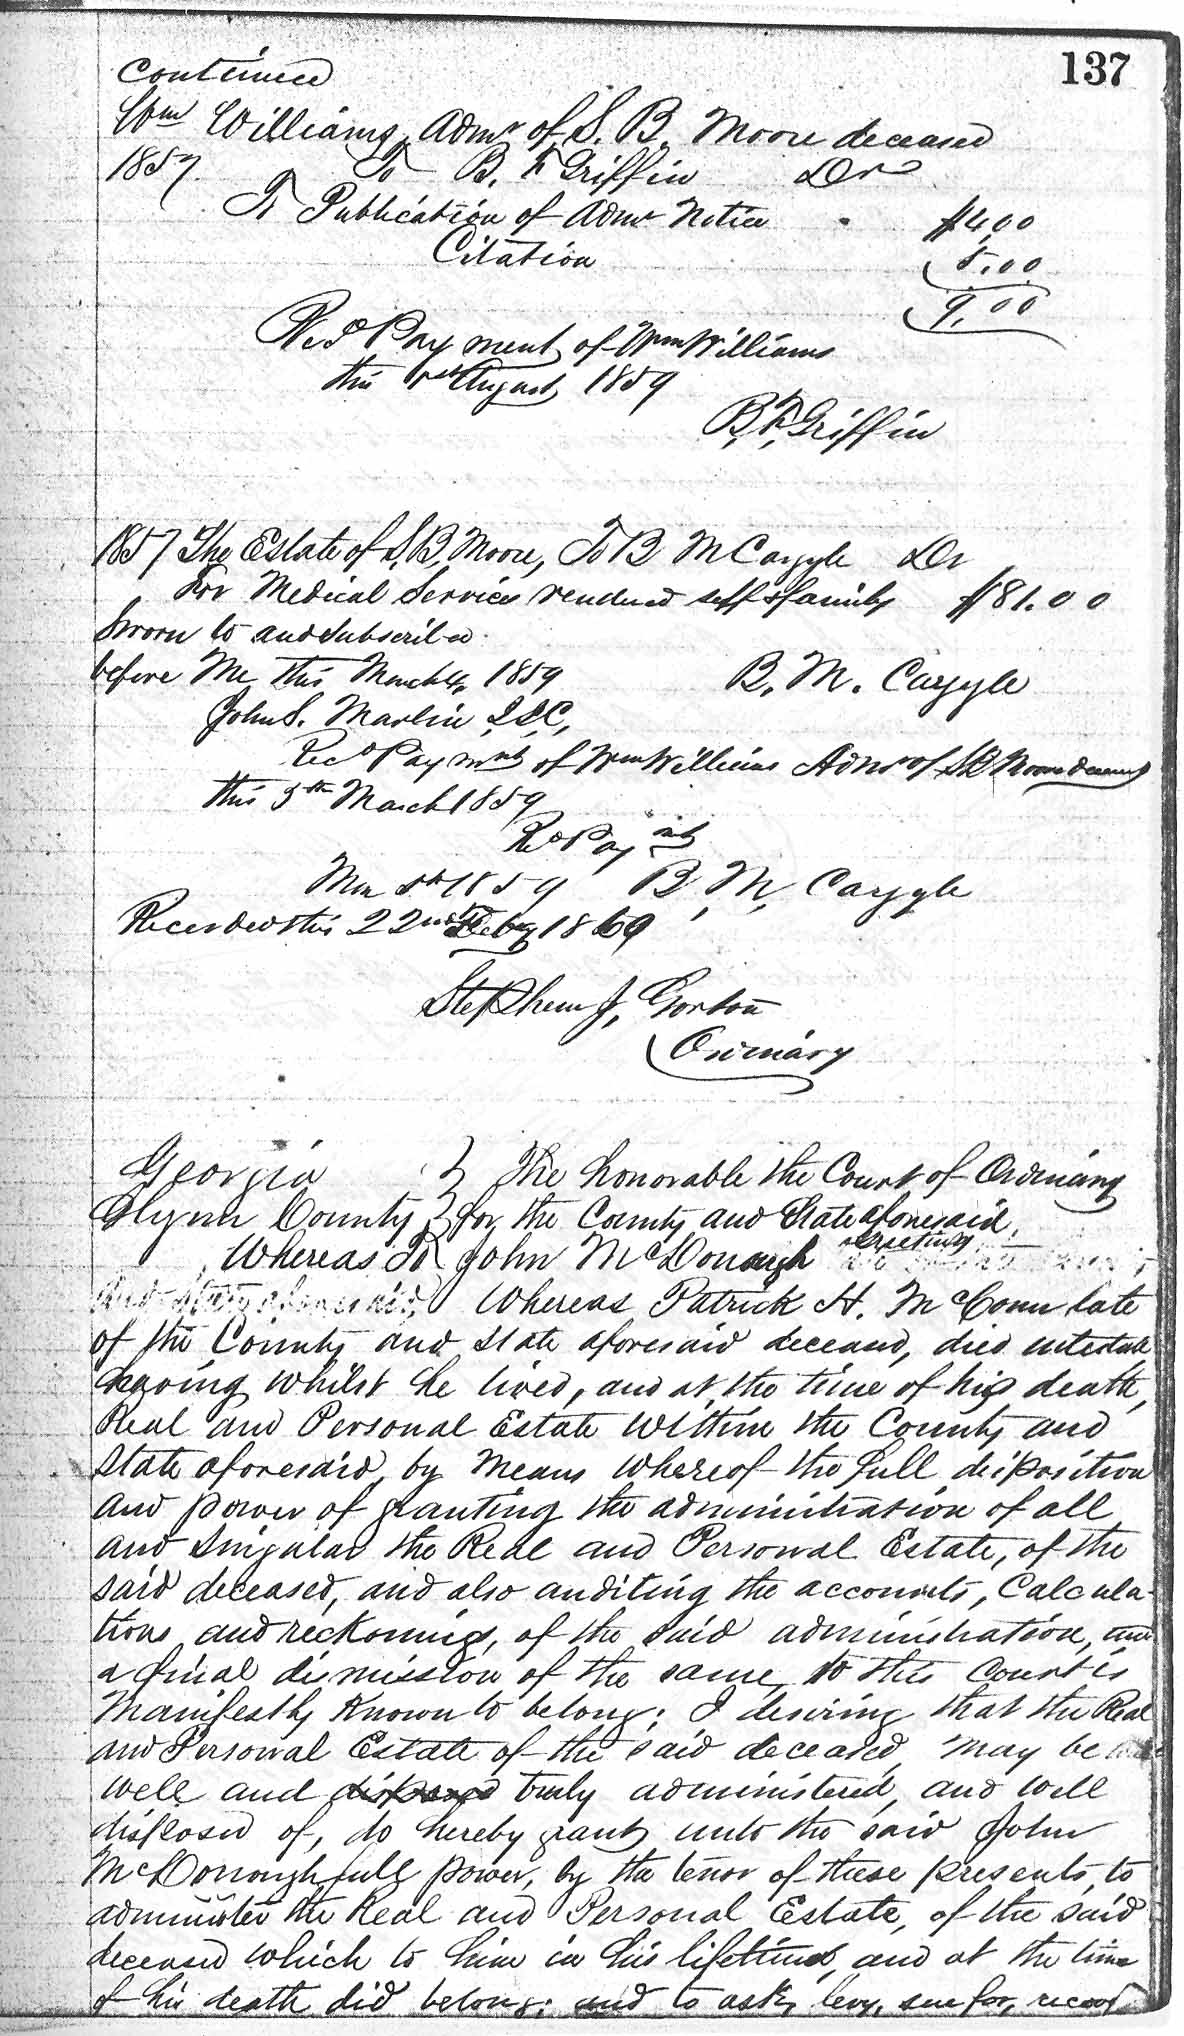 137
Continued
Wm Williams, Admr of S. B. Moore deceased
1857. To B. F. Griffin Dr
To Publication of Admr Notice $4.00
Citation 5.00
9.00
Recd Payment of Wm Williams
this 1st August 1859
B. F. Griffin
1857 The Estate of S. B. Moore, To B M Cargyle Dr
For Medical Services rendered self & family $81.00
Sworn to and Subscribed
before Me this March 4, 1859
B. M. Cargyle
John S. Marlin J.I.C,
Recd Payment of Wm Williams Admr of S B Moore deceased
this 5th March 1859
Recd Payment
Mar 5th 1859 B, M, Cargyle
Recorded this 22nd Feby 1869
Stephen J, Gorton
Ordinary
Georgia } The Honorable the Court of Ordinary
Glynn County } for the County and State aforesaid,
Whereas To John McDonough Greeting
Whereas Patrick H. McConn late
of the County and State aforesaid deceased, died intestate
having whilst he lived, and at the time of his death,
Real and Personal Estate within the County and
State aforesaid, by Means whereof the full disposition
and power of granting the administration of all
and Singular the Real and Personal Estate, of the
said deceased, and also auditing the accounts, Calcula-
tions and reckonings, of the said administration, and
a final dismission of the same, to this Court is
Manifestly Known to belong; I desiring that the Real
and Personal Estate of the said deceased, may be
well and truly administered, and well
disposed of, do hereby grant unto the said John
McDonough full power, by the tenor of these presents, to
administer the Real and Personal Estate, of the said
deceased which to him in his lifetime, and at the time
of his death did belong; and to ask, levy, sue for, recover